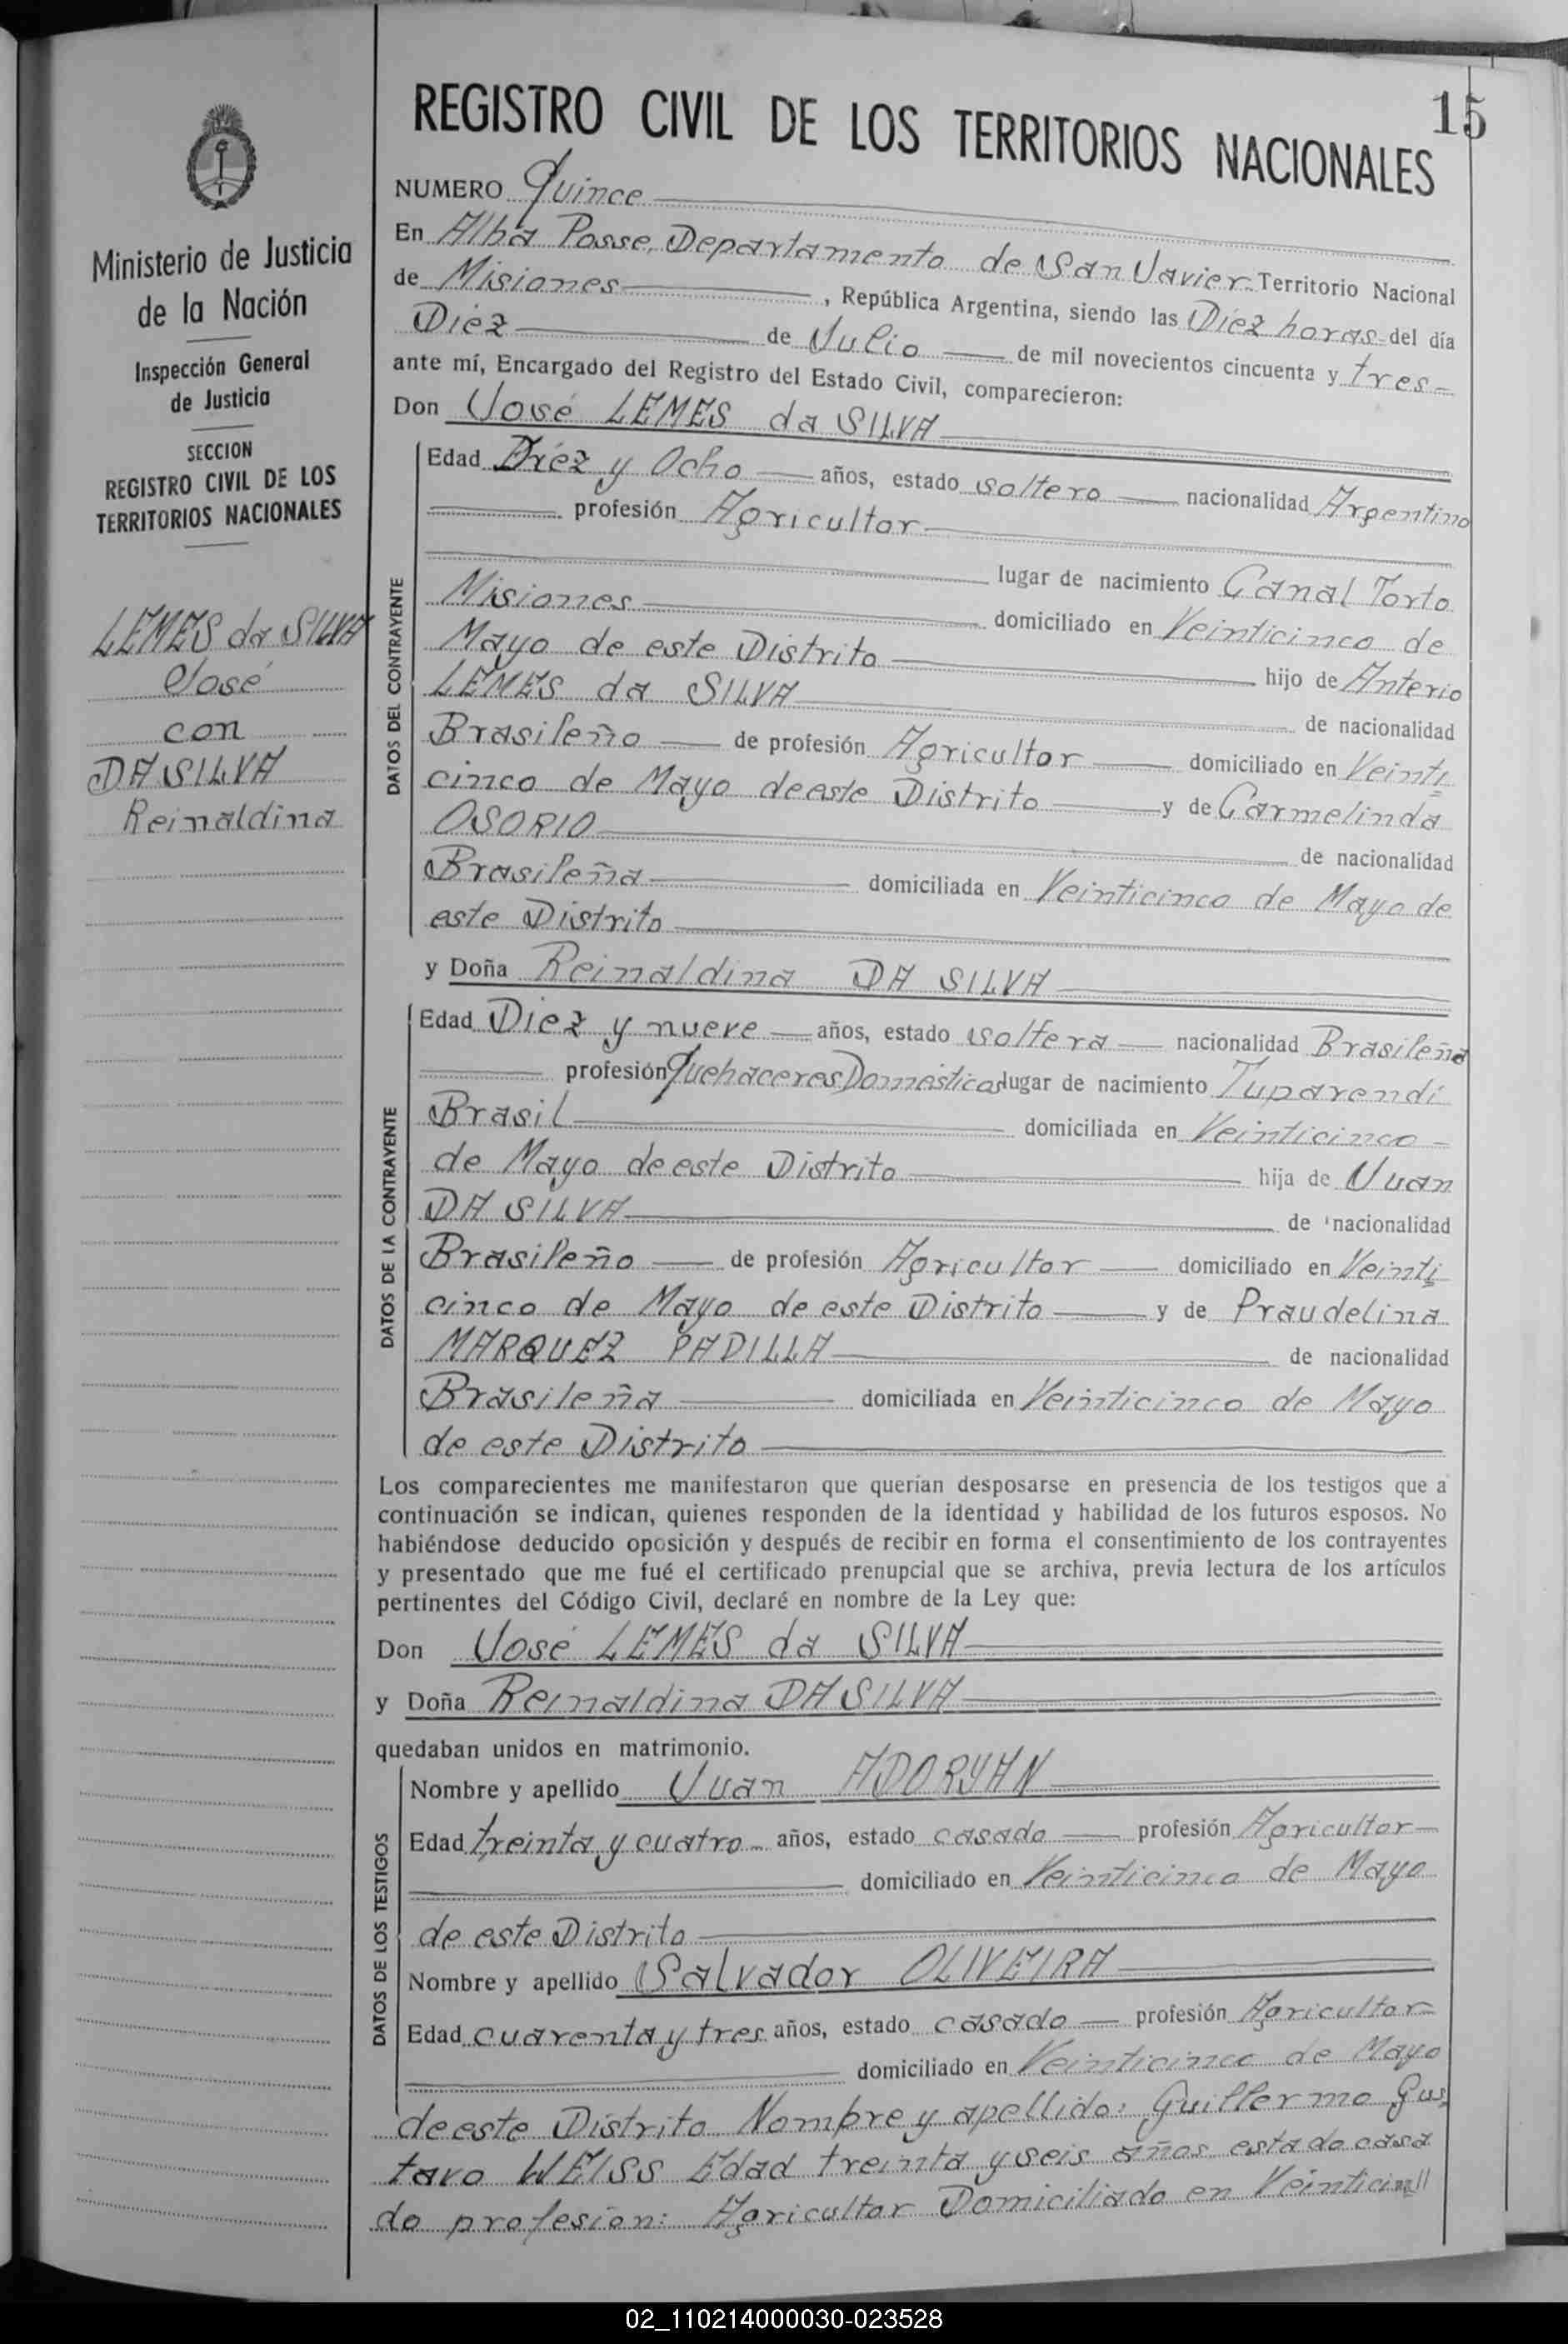 15
REGISTRO CIVIL DE LOS TERRITORIOS NACIONALES
Ministerio de Justicia
de la Nación
Inspección General
de Justicia
SECCION
REGISTRO CIVIL DE LOS
TERRITORIOS NACIONALES
LEMES da SILVA
José
con
DA SILVA
Reinaldina
NUMERO Quince
En Alba Posse, Departamento de San Javier Territorio Nacional
de Misiones, República Argentina, siendo las Diez horas del día
Diez de Julio de mil novecientos cincuenta y tres
ante mí, Encargado del Registro del Estado Civil, comparecieron:
Don José LEMES da SILVA
DATOS DEL CONTRAYENTE
Edad Diez y Ocho años, estado soltero nacionalidad Argentino
profesión Agricultor
lugar de nacimiento Canal Torto
Misiones domiciliado en Veinticinco de
Mayo de este Distrito hijo de Anterio
LEMES da SILVA de nacionalidad
Brasileño de profesión Agricultor domiciliado en Veinti
cinco de Mayo de este Distrito y de Carmelinda
OSORIO de nacionalidad
Brasileña domiciliada en Veinticinco de Mayo de
este Distrito
y Doña Reinaldina DA SILVA
DATOS DE LA CONTRAYENTE
Edad Diez y nueve años, estado soltera nacionalidad Brasileña
profesión Quehaceres Domésticos lugar de nacimiento Tuparendí
Brasil domiciliada en Veinticinco
de Mayo de este Distrito hija de Juan
DA SILVA de nacionalidad
Brasileño de profesión Agricultor domiciliado en Veinti
cinco de Mayo de este Distrito y de Praudelina
MARQUEZ PADILLA de nacionalidad
Brasileña domiciliada en Veinticinco de Mayo
de este Distrito
Los comparecientes me manifestaron que querían desposarse en presencia de los testigos que a
continuación se indican, quienes responden de la identidad y habilidad de los futuros esposos. No
habiéndose deducido oposición y después de recibir en forma el consentimiento de los contrayentes
y presentado que me fué el certificado prenupcial que se archiva, previa lectura de los artículos
pertinentes del Código Civil, declaré en nombre de la Ley que:
Don José LEMES da SILVA
y Doña Reinaldina DA SILVA
quedaban unidos en matrimonio.
DATOS DE LOS TESTIGOS
Nombre y apellido Juan ADORYAN
Edad treinta y cuatro años, estado casado profesión Agricultor
domiciliado en Veinticinco de Mayo
de este Distrito
Nombre y apellido Salvador OLIVEIRA
Edad cuarenta y tres años, estado casado profesión Agricultor
domiciliado en Veinticinco de Mayo
de este Distrito Nombre y apellido: Guillermo Gus
tavo WEISS Edad treinta y seis años estado casa
do profesión: Agricultor Domiciliado en Veinticin//
02_110214000030-023528